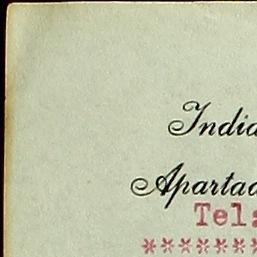 India
Apartad
Tel:
*******